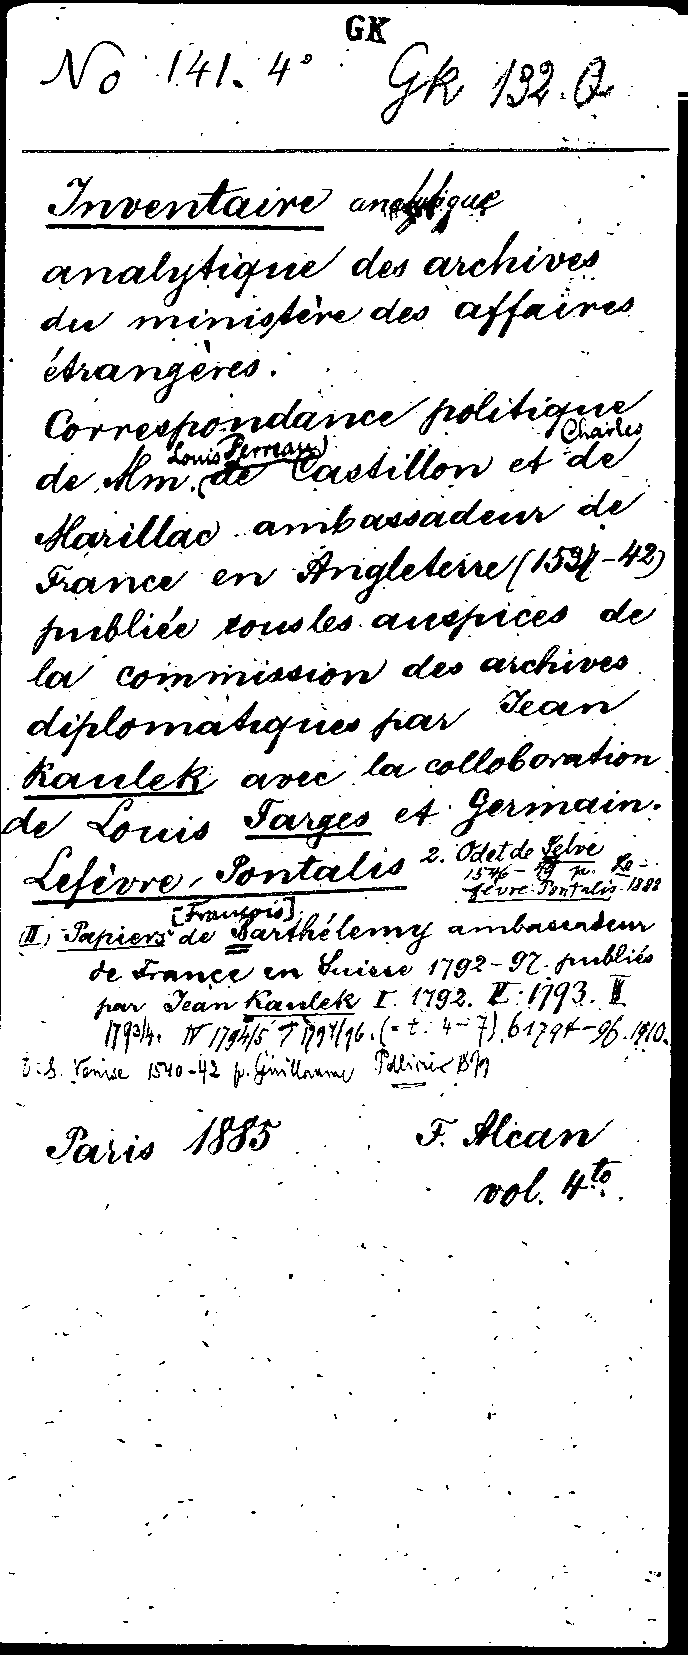 GK
No 141. 4° Gk 132. Q
Inventaire analytique
analytique des archives
du ministère des affaires
étrangères.
Correspondance politique
Louis Perreau) Charles
de Mm. (de Castillon et de
Marillac ambassadeur de
France en Angleterre (1537-42)
publiée sous les auspices de
la commission des archives
diplomatiques par Jean
Kaulek avec la colloboration
de Louis Farges et Germain.
Lefèvre-Pontalis 2. Odet de Selve
1546-49 p. Le-
fèvre-Pontalis 1888
[François]
(II) Papiers de Barthélemy ambassadeur
de France en Suisse 1792-97. publiés
par Jean Kaulek I. 1792. II: 1793. III
1793/4. IV 1794/5 1794/96. (= t. 4-7) 6 1794-96. 1910.
Venise 1540-42 p. Guillaume Pellicier
Paris 1885 F. Alcan
vol. 4to.